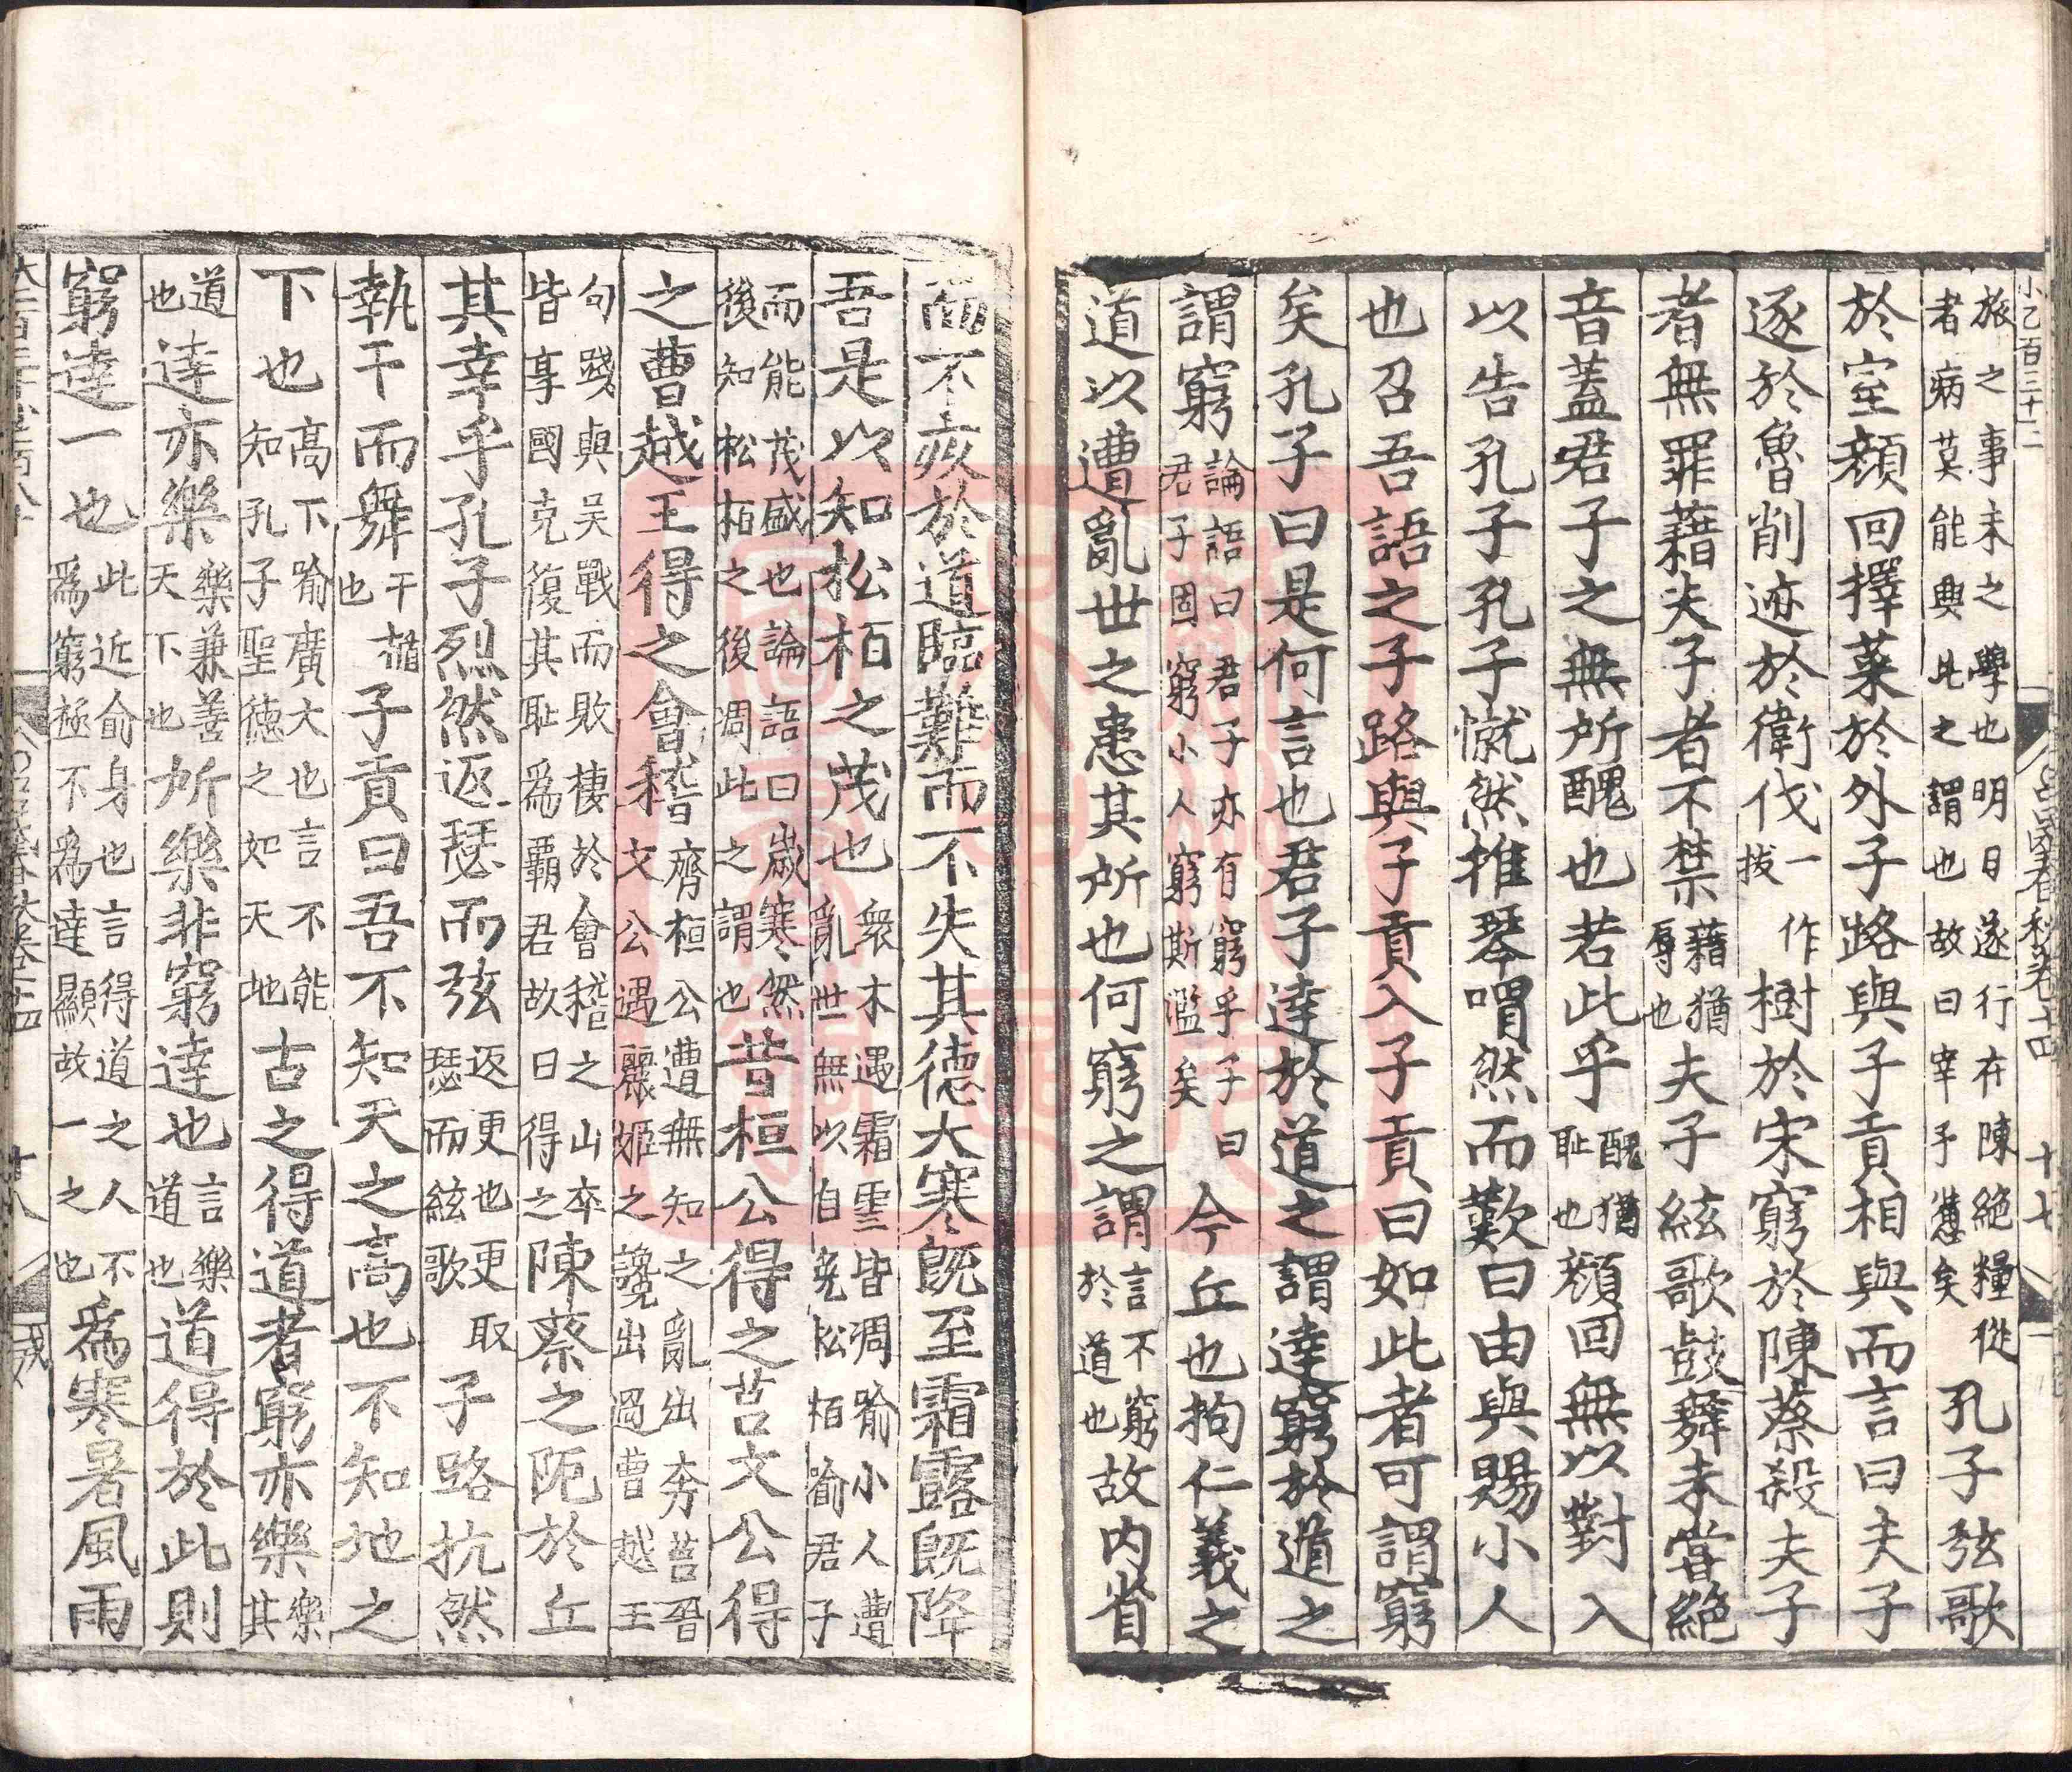 小乙百三十二
吕氏春秋卷十四　十七
旅之事未之學也明日遂行在陳絕糧從者病莫能興此之謂也故曰宰予憊矣孔子弦歌
於室顔回擇菜於外子路與子貢相與而言曰夫子
逐於魯削迹於衛伐一作拔樹於宋窮於陳蔡殺夫子
者無罪藉夫子者不禁藉猶辱也夫子絃歌鼓舞未嘗絕
音蓋君子之無所醜也若此乎醜猶恥也顔回無以對入
以告孔子孔子憱然推琴喟然而歎曰由與賜小人
也召吾語之子路與子貢入子貢曰如此者可謂窮
矣孔子曰是何言也君子達於道之謂達窮於道之
謂窮論語曰君子亦有窮乎子曰君子固窮小人窮斯濫矣今丘也拘仁義之
道以遭亂世之患其所也何窮之謂言不窮於道也故内省
而不疚於道臨難而不失其德大寒旣至霜露旣降
吾是以知松栢之茂也衆木遇霜雪皆凋喻小人遭亂世無以自免松栢喻君子
而能茂盛也論語曰歲寒然後知松栢之後凋此之謂也昔桓公得之莒文公得
之曹越王得之會稽齊桓公遭無知之亂出奔莒晉文公遇麗姬之讒出過曹越王
句踐與吳戰而敗棲於會稽之山卒皆享國克復其恥爲霸君故曰得之陳蔡之阨於丘
其幸乎孔子烈然返瑟而弦返更也更取瑟而絃歌子路抗然
執干而舞干楯也子貢曰吾不知天之高也不知地之
下也高下喻廣大也言不能知孔子聖德之如天地古之得道者窮亦樂樂其
道也達亦樂樂兼善天下也所樂非窮達也言樂道也道得於此則
窮達一也此近喻身也言得道之人不爲窮極不爲達顯故一之也爲寒暑風雨
十八